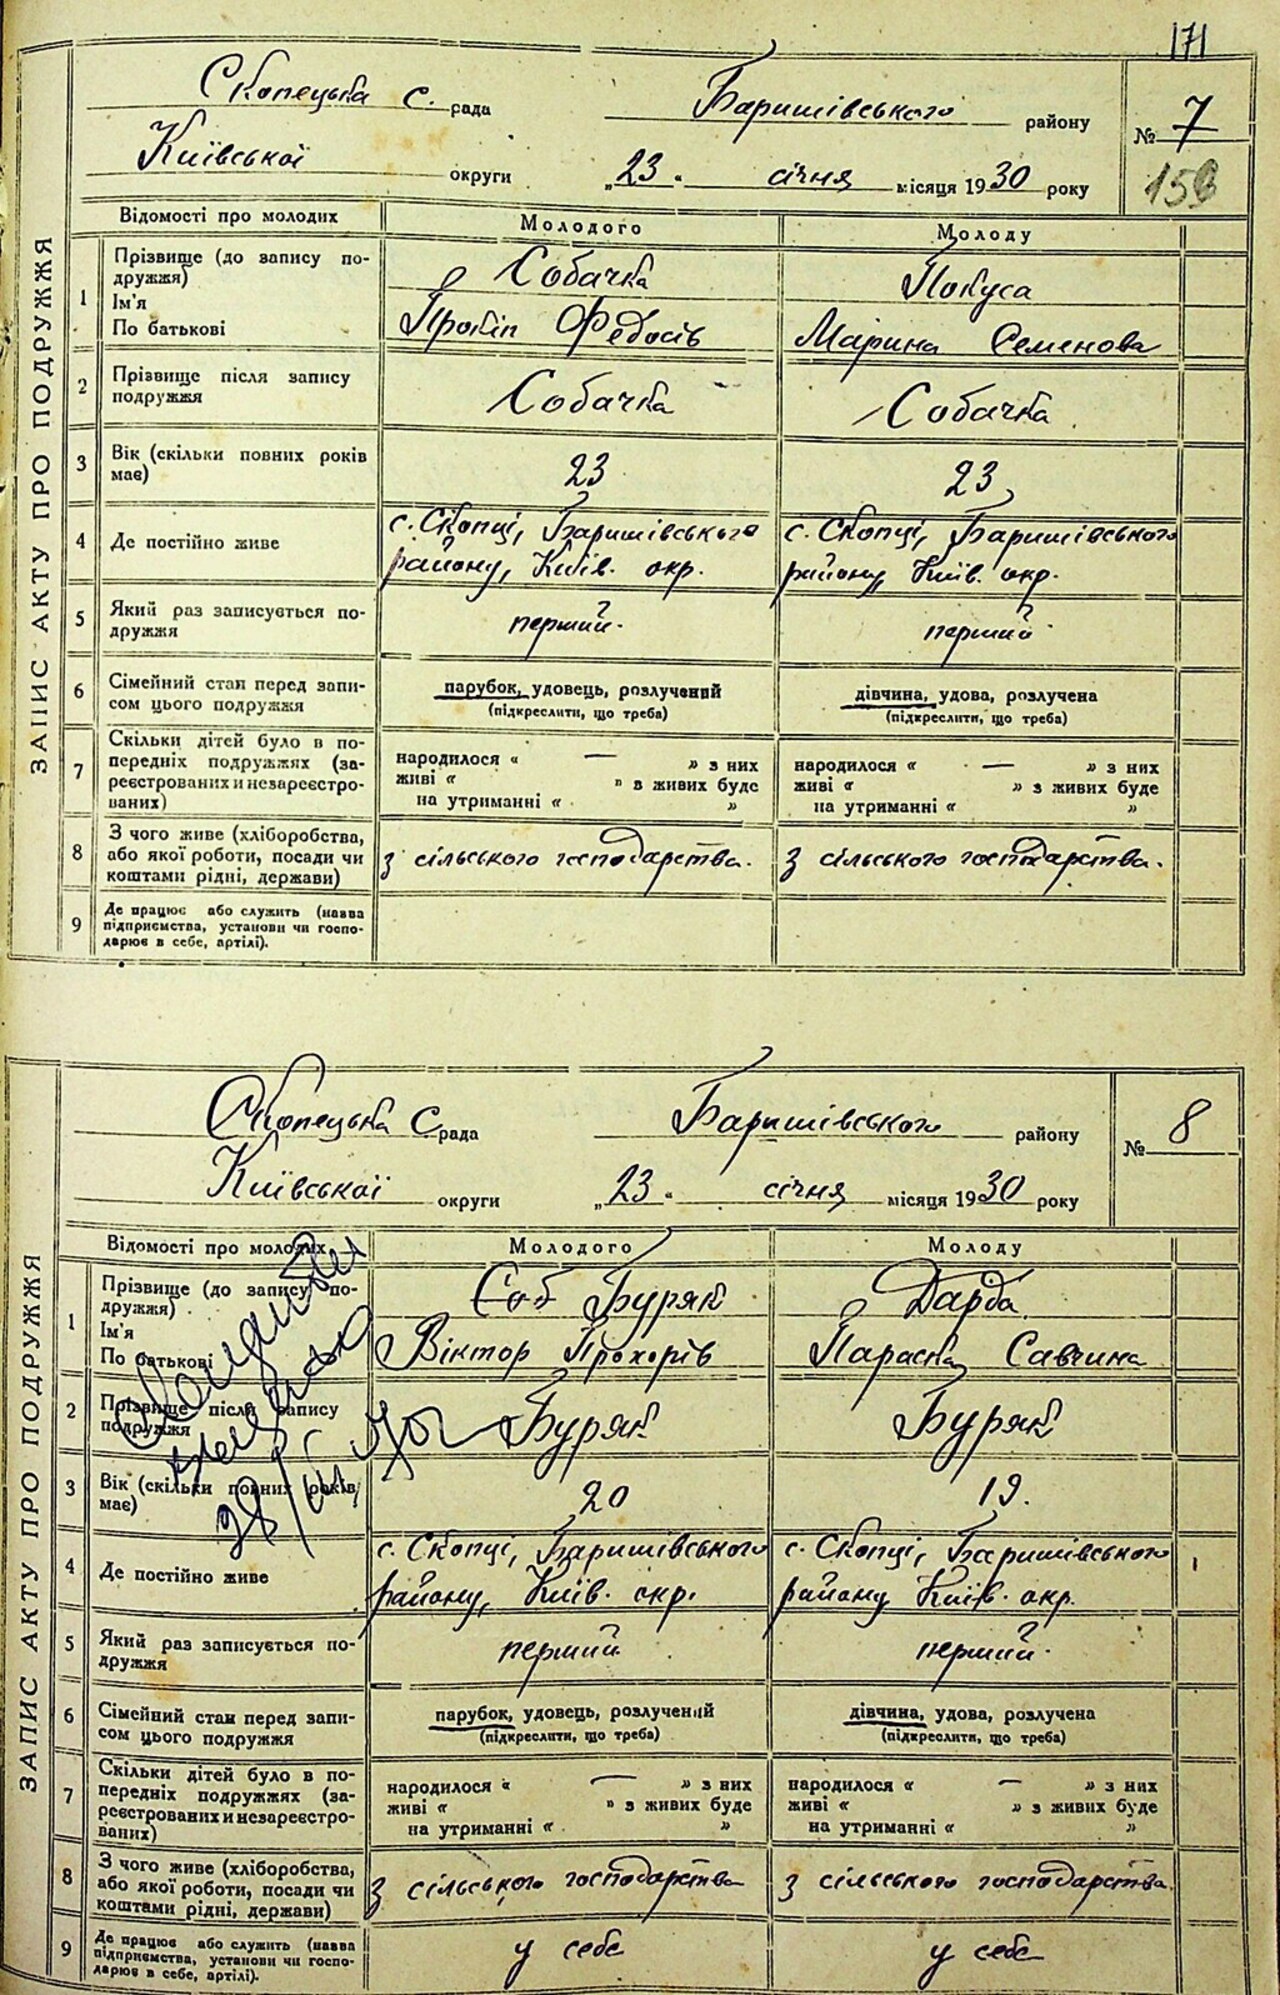 171
Скопецька с. рада Баришівського району № 7
Київської округи „23“ січня місяця 1930 року
153
ЗАПИС АКТУ ПРО ПОДРУЖЖЯ
Відомості про молодих Молодого Молоду
1 Прізвище (до запису по- Собачка Покуса
дружжя)
Ім'я Прокіп Федосів Марина Семенова
По батькові
2 Прізвище після запису Собачка Собачка
подружжя
3 Вік (скільки повних років 23 23
має)
4 Де постійно живе с. Скопці, Баришівського с. Скопці, Баришівського
району, Київ. окр. району, Київ. окр.
5 Який раз записується по- перший. перший
дружжя
6 Сімейний стан перед запи- парубок, удовець, розлучений дівчина, удова, розлучена
сом цього подружжя (підкреслити, що треба) (підкреслити, що треба)
7 Скільки дітей було в по- народилося « — » з них народилося « — » з них
передніх подружжях (за- живі « » в живих буде живі « » з живих буде
реєстрованих и незареєстро- на утриманні « » на утриманні « »
ваних)
8 З чого живе (хліборобства, з сільського господарства. з сільського господарства.
або якої роботи, посади чи
коштами рідні, держави)
9 Де працює або служить (назва
підприємства, установи чи госпо-
дарює в себе, артілі).
Скопецька С. рада Баришівського району № 8
Київської округи „23“ січня місяця 1930 року
ЗАПИС АКТУ ПРО ПОДРУЖЖЯ
Відомості про молодих Молодого Молоду
1 Прізвище (до запису по- Соб Буряк Дарда
дружжя)
Ім'я Віктор Прохорів Параска Савчина
По батькові
2 Прізвище після запису Буряк Буряк
подружжя
3 Вік (скільки повних років 20 19.
має)
4 Де постійно живе с. Скопці, Баришівського с. Скопці, Баришівського
району, Київ. окр. району Київ. окр.
5 Який раз записується по- перший. перший.
дружжя
6 Сімейний стан перед запи- парубок, удовець, розлучений дівчина, удова, розлучена
сом цього подружжя (підкреслити, що треба) (підкреслити, що треба)
7 Скільки дітей було в по- народилося « — » з них народилося « — » з них
передніх подружжях (за- живі « » з живих буде живі « » з живих буде
реєстрованих и незареєстро- на утриманні « » на утриманні « »
ваних)
8 З чого живе (хліборобства, з сільського господарства з сільського господарства.
або якої роботи, посади чи
коштами рідні, держави)
9 Де працює або служить (назва у себе у себе
підприємства, установи чи госпо-
дарює в себе, артілі).